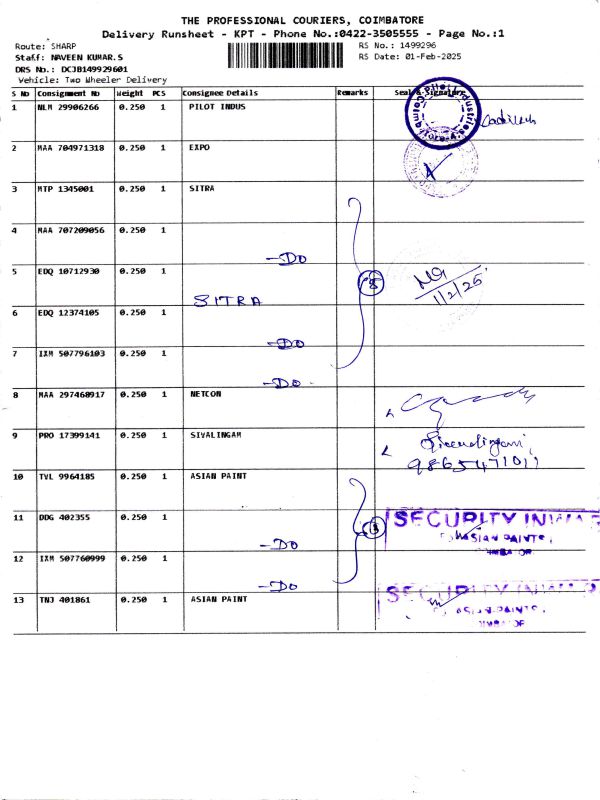 THE PROFESSIONAL COURIERS, COIMBATORE
Delivery Runsheet - KPT - Phone No.:0422-3505555 - Page No.:1
Route: SHARP
RS No.: 1499296
Staff: NAVEEN KUMAR.S
RS Date: 01-Feb-2025
DRS No.: DCJB149929601
Vehicle: Two Wheeler Delivery
S No Consignment No Weight PCS Consignee Details Remarks Seal & Signature
1 NLM 29906266 0.250 1 PILOT INDUS
2 MAA 704971318 0.250 1 EXPO
3 MTP 1345001 0.250 1 SITRA
4 MAA 707209056 0.250 1
-DO
5 EDQ 10712930 0.250 1 5 NG
SITRA 1/2/25
6 EDQ 12374105 0.250 1
-DO
7 IXM 507796103 0.250 1
-DO
8 MAA 297468917 0.250 1 NETCON
9 PRO 17399141 0.250 1 SIVALINGAM
10 TVL 9964185 0.250 1 ASIAN PAINT
11 DDG 402355 0.250 1 3 SECURITY INWAR
-DO ASIAN PAINTS,
12 IXM 507760999 0.250 1
-DO
13 TNJ 401861 0.250 1 ASIAN PAINT SECURITY INWAR
ASIAN PAINTS,